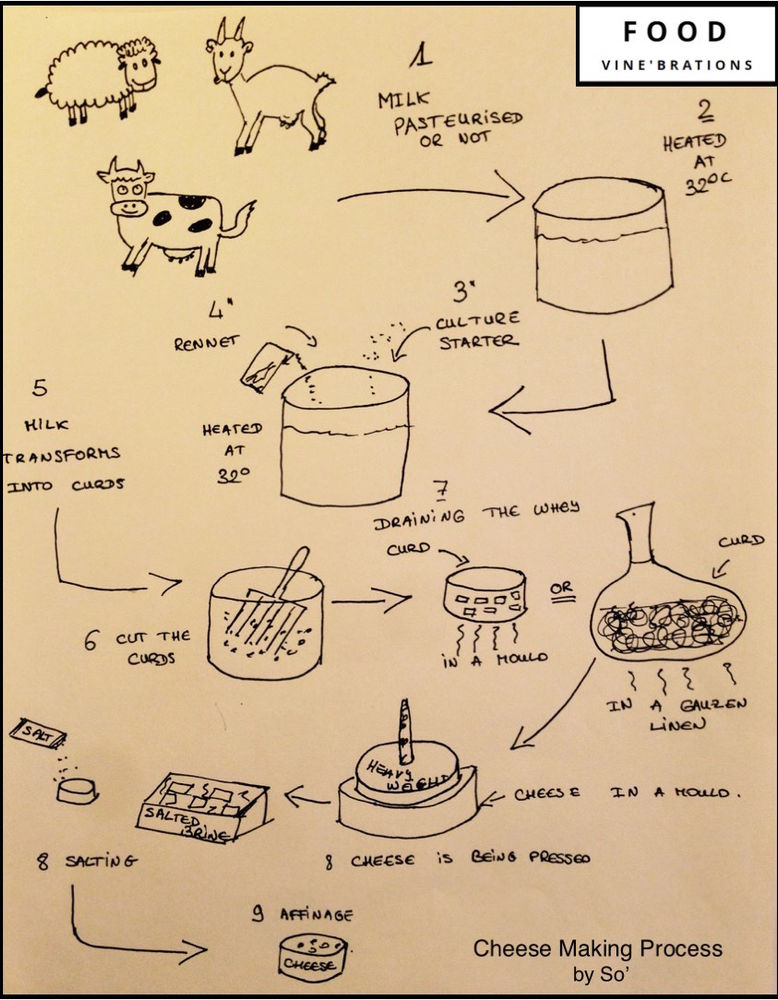 FOOD
VINE'BRATIONS
1
MILK
PASTEURISED
OR NOT
2
HEATED
AT
32°C
3"
CULTURE
STARTER
4"
RENNET
HEATED
AT
32°
5
MILK
TRANSFORMS
INTO CURDS
6 CUT THE
CURDS
7
DRAINING THE WHEY
CURD
IN A MOULD
OR
CURD
IN A GAUZEN
LINEN
HEAVY
WEIGHT
CHEESE IN A MOULD.
8 CHEESE IS BEING PRESSED
SALTED
BRINE
SALT
8 SALTING
9 AFFINAGE
CHEESE
Cheese Making Process
by So'